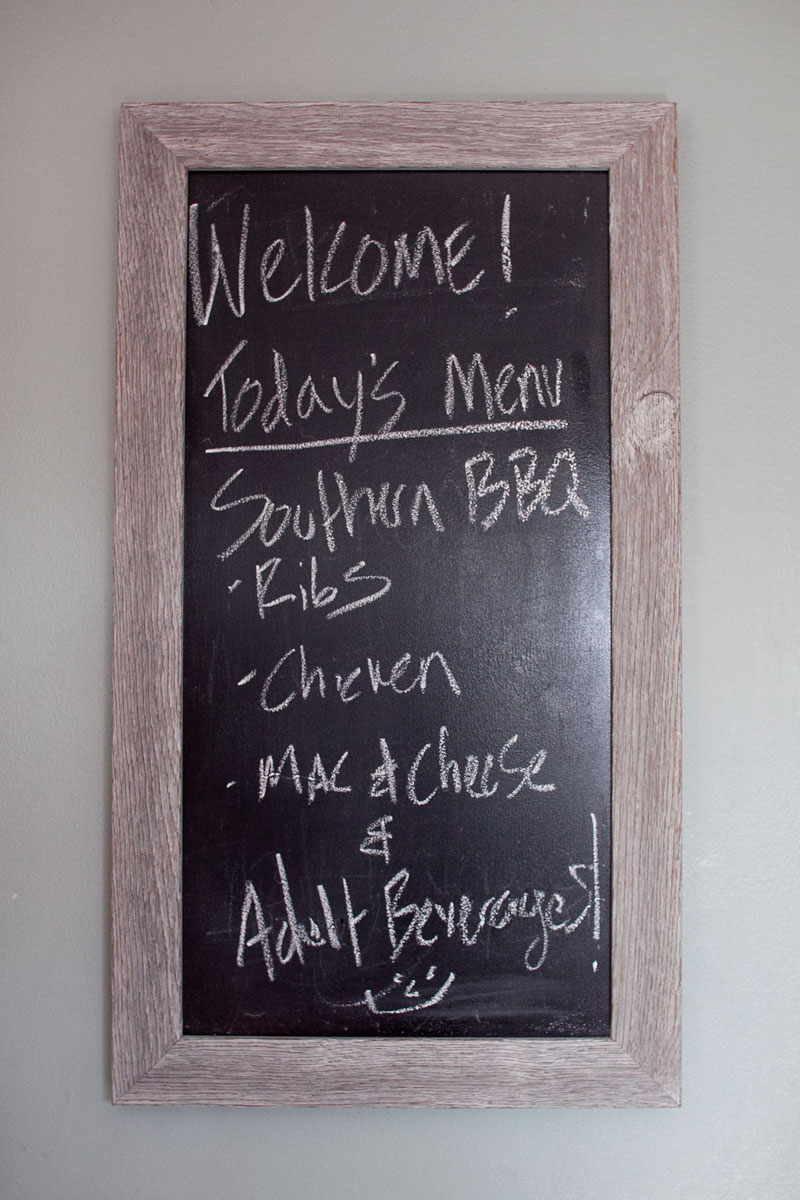 Welcome!
Today's Menu
Southern BBQ
- Ribs
- Chicken
- Mac & Cheese
&
Adult Beverages!